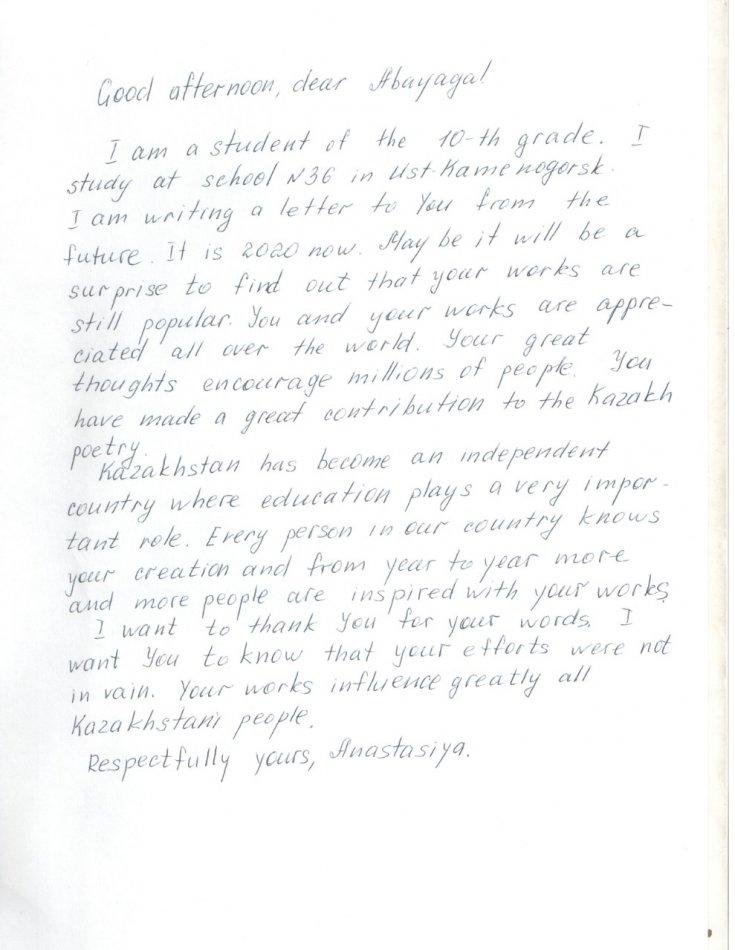 Good afternoon, dear Abayaga!
I am a student of the 10-th grade. I
study at school N36 in Ust-Kamenogorsk.
I am writing a letter to You from the
future. It is 2020 now. May be it will be a
surprise to find out that your works are
still popular. You and your works are appre-
ciated all over the world. Your great
thoughts encourage millions of people. You
have made a great contribution to the Kazakh
poetry.
Kazakhstan has become an independent
country where education plays a very impor-
tant role. Every person in our country knows
your creation and from year to year more
and more people are inspired with your works.
I want to thank You for your words. I
want You to know that your efforts were not
in vain. Your works influence greatly all
Kazakhstani people.
Respectfully yours, Anastasiya.